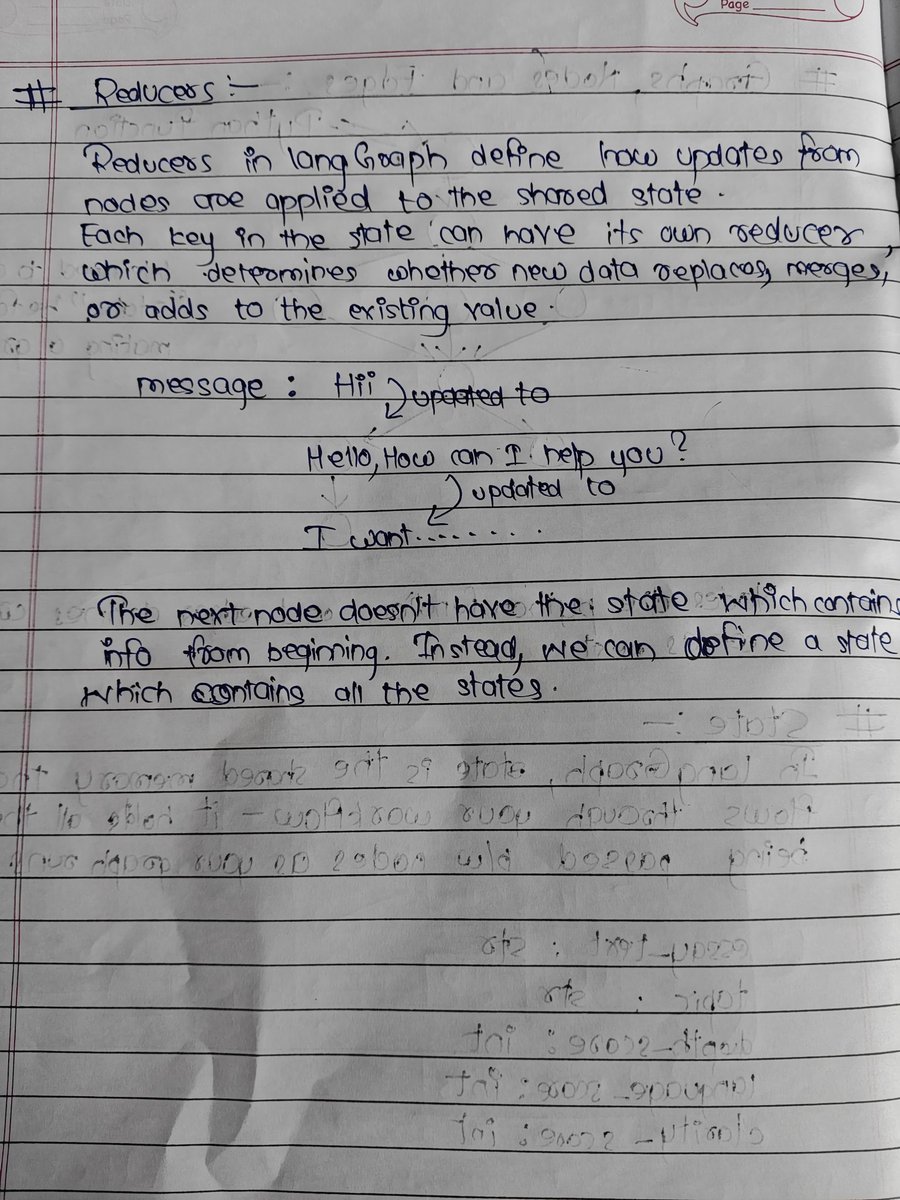 Page
# Reducers :-
Reducers in langGraph define how updates from
nodes are applied to the shared state.
Each key in the state can have its own reducer,
which determines whether new data replaces, merges,
or adds to the existing value.
message : Hii updated to
Hello, How can I help you?
updated to
I want........
The next node doesn't have the state which contains
info from beginning. Instead, we can define a state
which contains all the states.